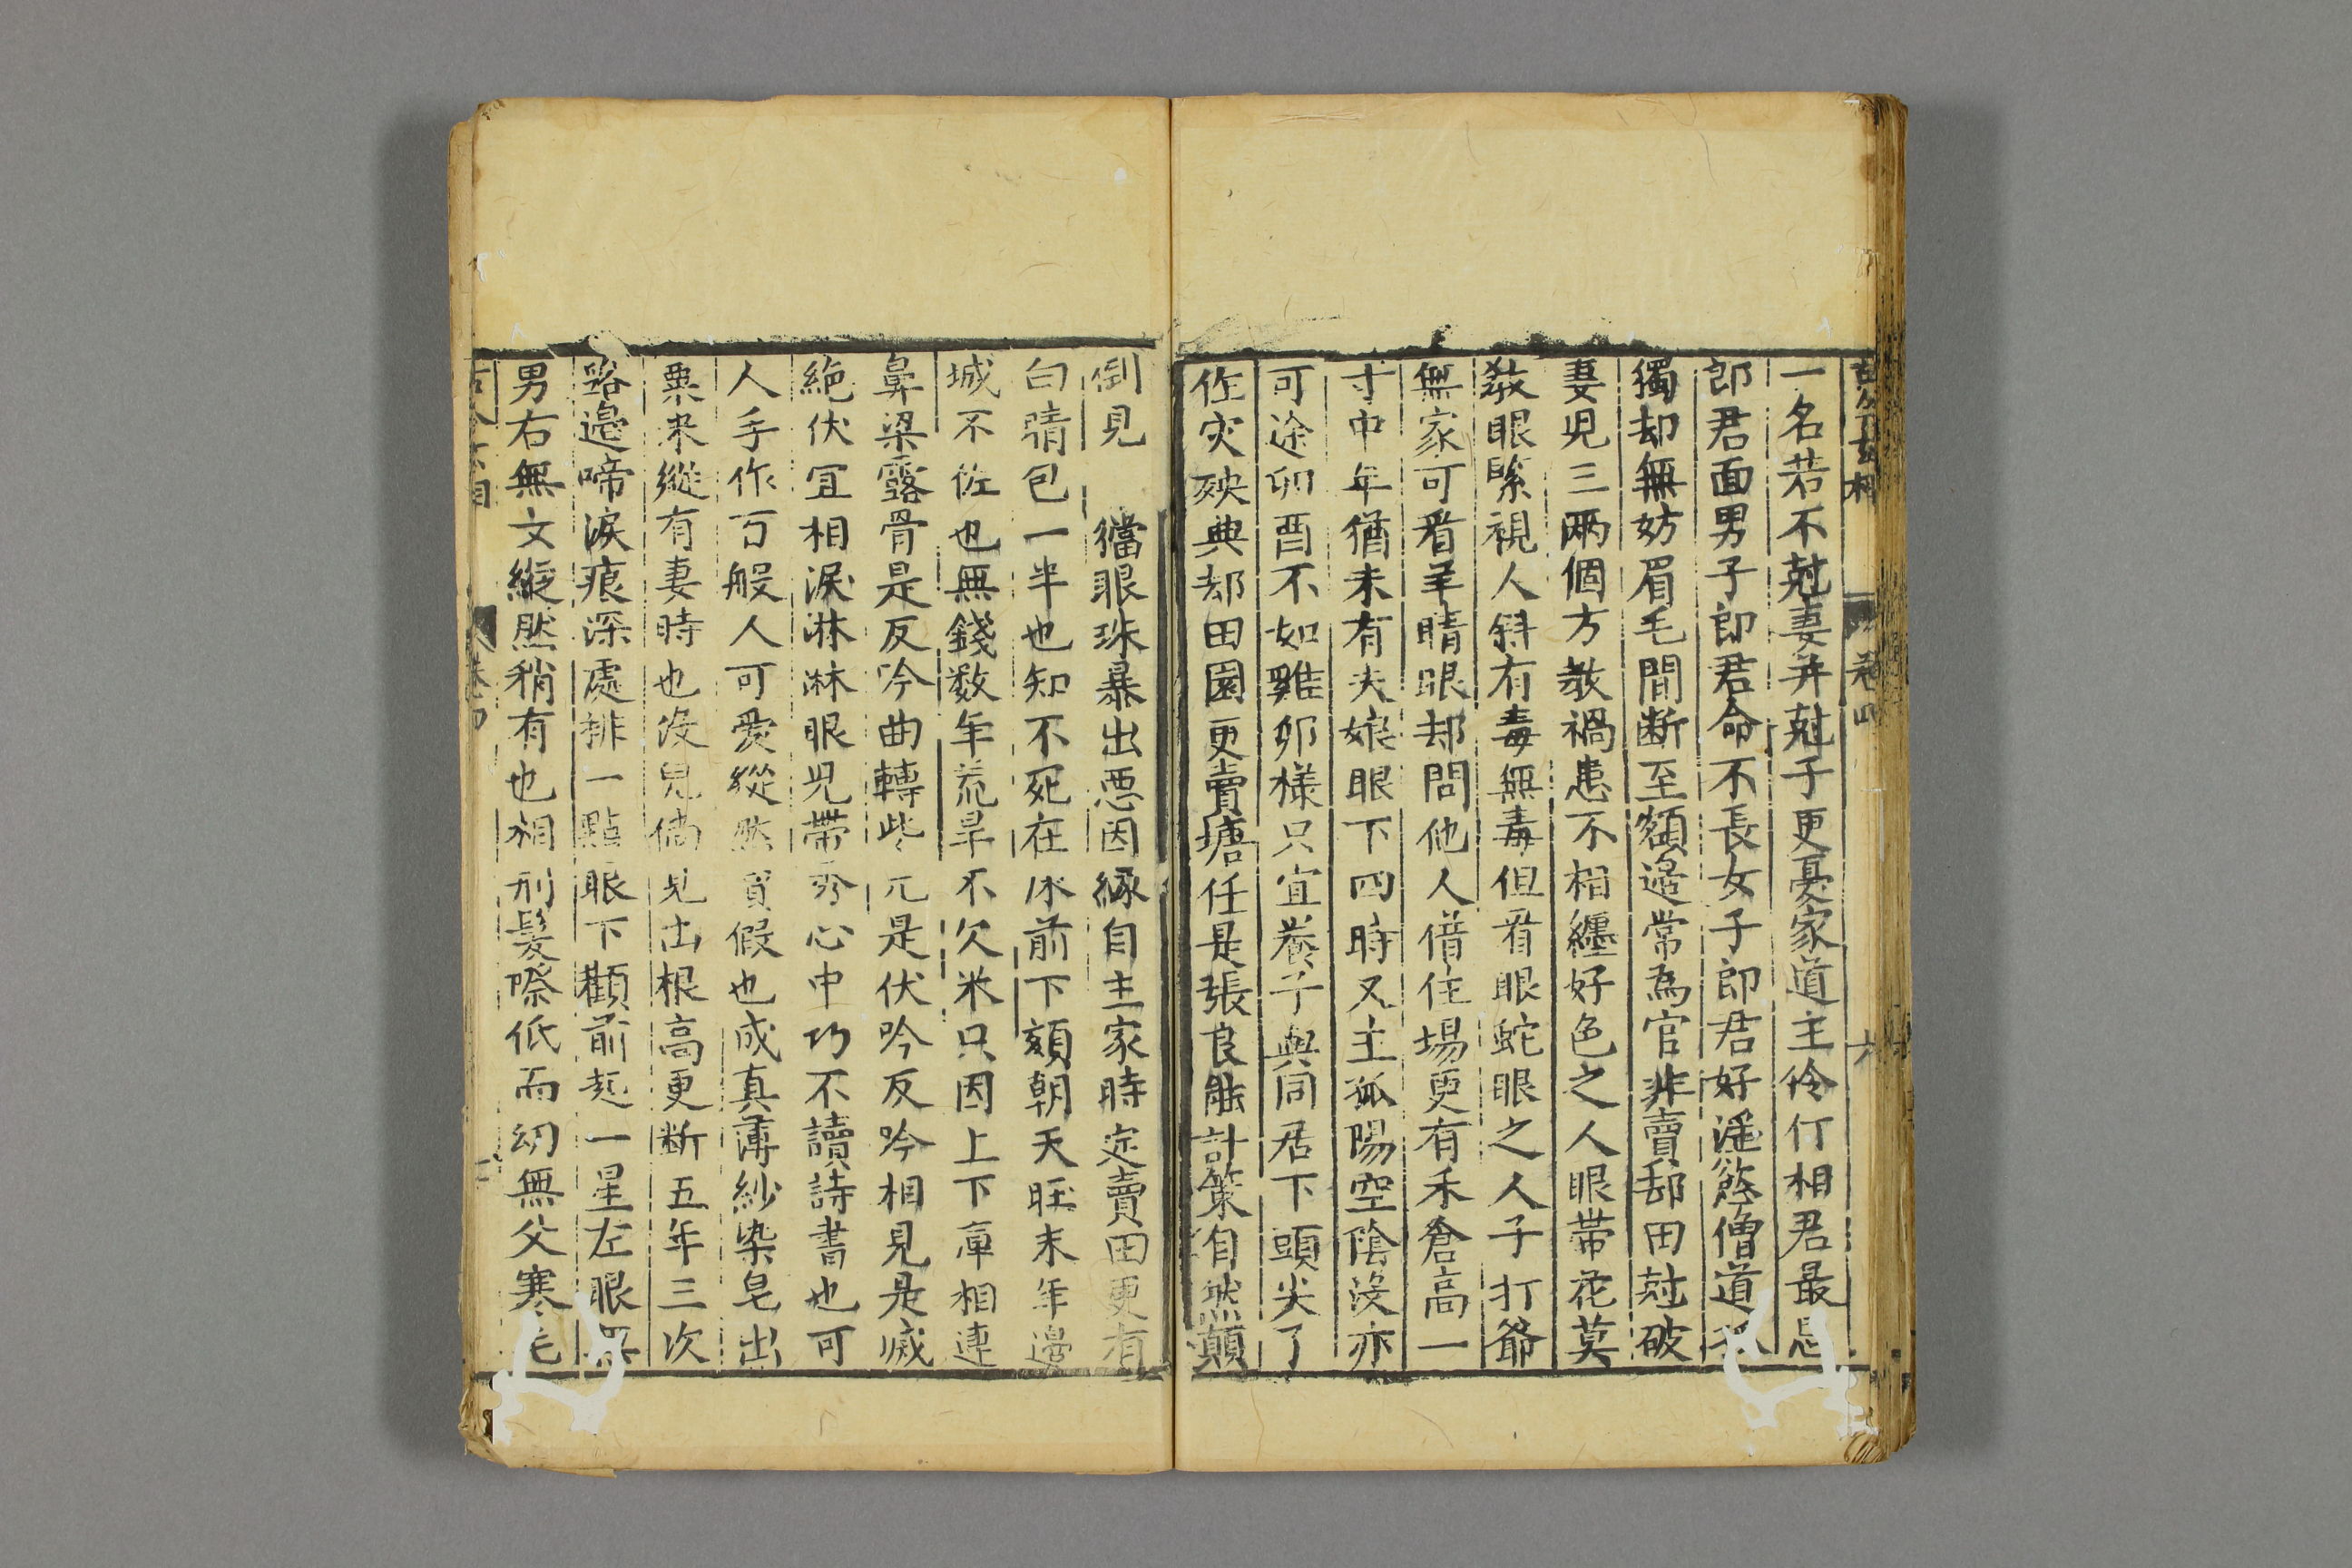 卷四
六
一名若不尅妻并尅子更憂家道主伶仃相君最忌
郎君面男子郎君命不長女子郎君好滛慾僧道
獨却無妨眉毛間断至額邉常為官非賣却田尅破
妻児三兩個方教禍患不相纏好色之人眼帶花莫
教眼緊視人斜有毒無毒但看眼蛇眼之人子打爺
無家可看羊睛眼却問他人借住場更有禾倉高一
寸中年猶未有夫娘眼下四時又主孤陽空隂沒亦
可途卯酉不如雞卵樣只宜養子與同居下頭尖了
作灾殃典却田園更賣塘任是張良能計策自然顛
倒見 獦眼珠暴出悪因緣自主家時定賣田更有
白睛包一半也知不死在床前下頦朝天旺末年邊
城不佐也無錢数年荒旱不欠米只因上下庫相連
鼻梁露骨是反吟曲轉些兀是伏吟反吟相見是滅
絶伏冝相淚淋淋眼児帶秀心中巧不讀詩書也可
人手作百般人可愛縱然賀假也成真薄紗染皂出
粟来縱有妻時也没兒倘見出根高更断五年三次
路邉啼淚痕深處排一點眼下顴前起一星左眼無
男右無文縱然稍有也相刑髮際低而幼無父寒毛